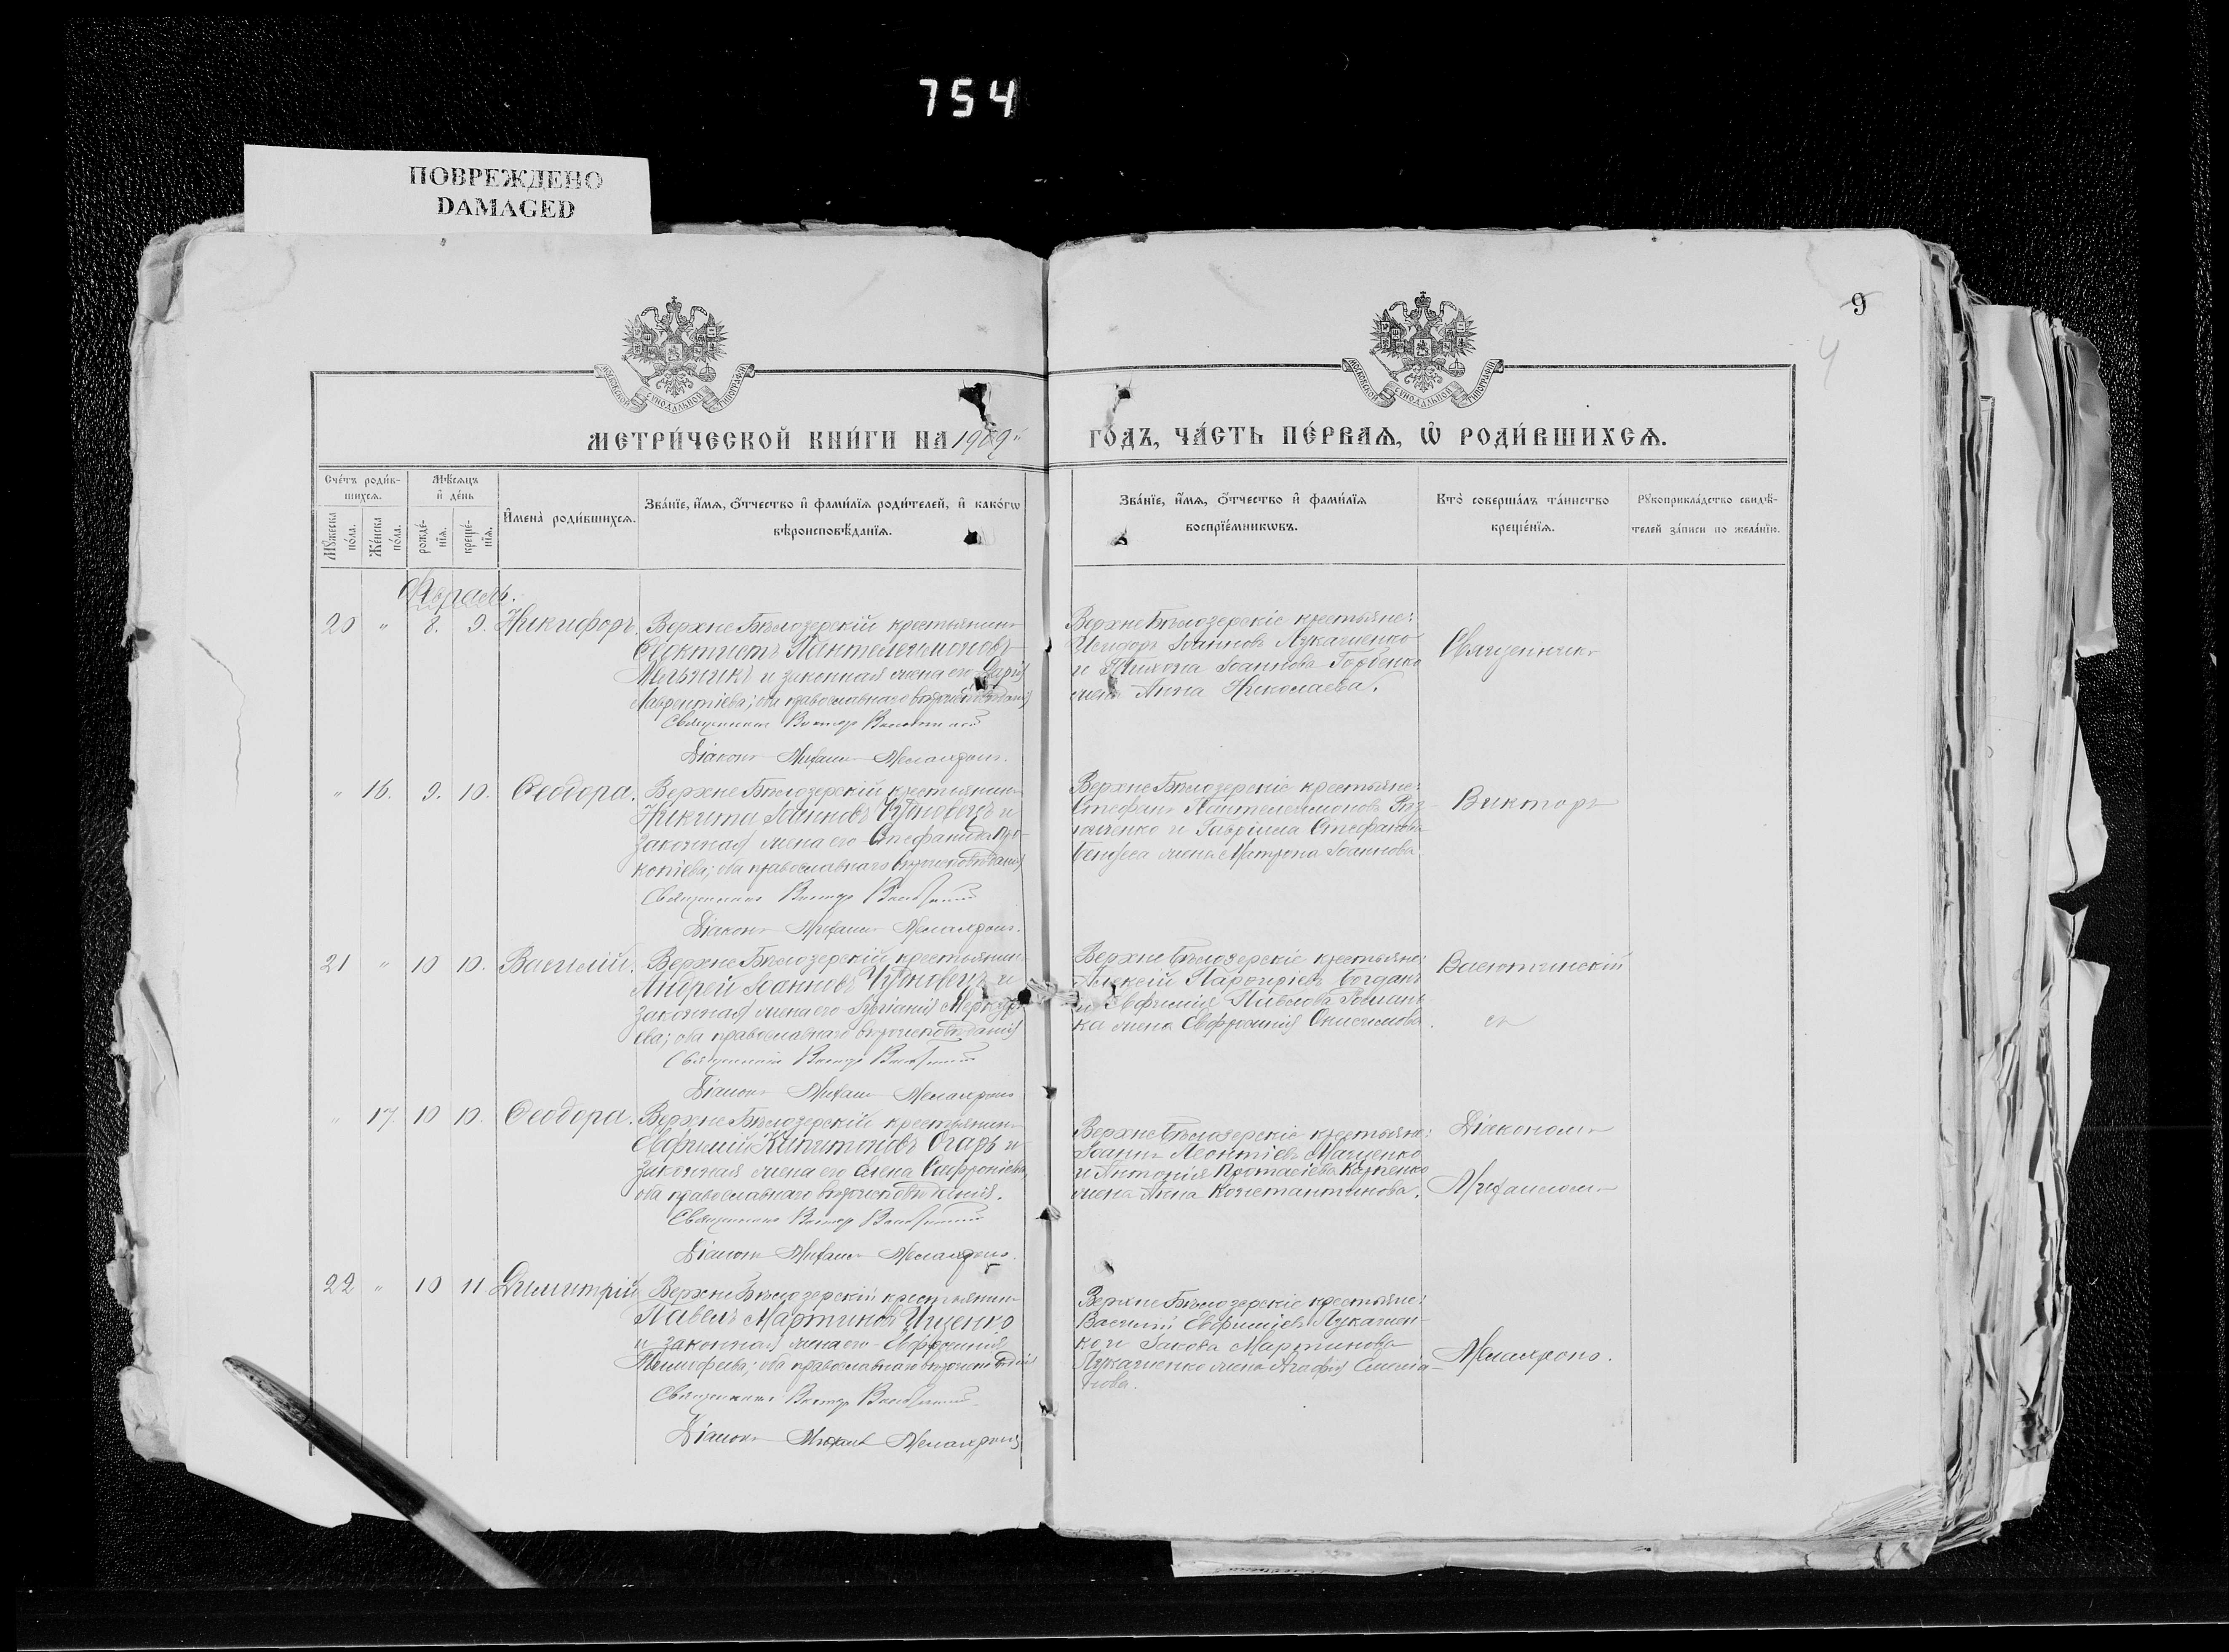 754
ПОВРЕЖДЕНО
DAMAGED
9
4
МОСКОВСКОЙ СѴНОДАЛЬНОЙ ТИПОГРАФІИ
МОСКОВСКОЙ СѴНОДАЛЬНОЙ ТИПОГРАФІИ
МЕТРИ́ЧЕСКОЙ КНИ́ГИ НА 1909
ГО́ДЪ, ЧА́СТЬ ПЕ́РВАѦ, Ѽ РОДИ́ВШИХСѦ.
Сче́тъ роди́в-
шихсѧ.
Мꙋжеска по́ла.
Же́нска по́ла.
Мѣ́сѧцъ
и҆ де́нь
рожде́-
нїѧ.
креще́-
нїѧ.
И҆мена̀ роди́вшихсѧ.
Зва́нїе, и҆́мѧ, ѻ҆́тчество и҆ фами́лїѧ роди́телей, и҆ како́гѡ
вѣроисповѣ́данїѧ.
Зва́нїе, и҆́мѧ, ѻ҆́тчество и҆ фами́лїѧ
воспрїе́мникѡвъ.
Кто̀ соверша́лъ та́инство
креще́нїѧ.
Рꙋкоприкла́дство свидѣ́-
телей за́писи по жела́нїю.
Февраль.
20 " 8. 9. Никифоръ.
Верхне Бѣлозерскій крестьянинъ
Ѳеоктистъ Пантелеимоновъ
Мельникъ и законная жена его Дарія
Лаврентіева; оба православнаго вѣроисповѣданія
Священникъ Викторъ Васютинскій
Діаконъ Михаилъ
Верхне Бѣлозерскіе крестьяне:
Исидоръ Іоанновъ Лукашенко
и Тихона Іоаннова Горбенко
жена Анна Николаева.
Священникъ
" 16. 9. 10. Ѳеодора.
Верхне Бѣлозерскій крестьянинъ
Никита Іоанновъ Чуновецъ и
законная жена его Стефанида Про-
копіева; оба православнаго вѣроисповѣданія
Священникъ Викторъ Васютинскій
Діаконъ Михаилъ
Верхне Бѣлозерскіе крестьяне:
Стефанъ Пантелеимоновъ
и Гавріила Стефанова
жена Матрона Іоаннова
Викторъ
21 " 10 10. Василій.
Верхне Бѣлозерскій крестьянинъ
Андрей Іоанновъ Чуновецъ и
законная жена его Іуліанія Меркурі-
ева; оба православнаго вѣроисповѣданія
Священникъ Викторъ Васютинскій
Діаконъ Михаилъ
Верхне Бѣлозерскіе крестьяне:
Алексій Порфиріевъ Богданъ
и Евфимія Павлова
ка жена Евфросинія Онисимова.
Васютинскій
съ
" 17. 10 10. Ѳеодора.
Верхне Бѣлозерскій крестьянинъ
Евфимій Капитоновъ Огарь и
законная жена его Елена Софроніева,
оба православнаго вѣроисповѣданія.
Священникъ Викторъ Васютинскій
Діаконъ Михаилъ
Верхне Бѣлозерскіе крестьяне:
Іоаннъ Леонтіевъ Маценко
и Антонія Протасіева Карпенко
жена Анна Константинова.
Діакономъ
Михаиломъ
22 " 10 11 Димитрій
Верхне Бѣлозерскій крестьянинъ
Павелъ Мартиновъ Ищенко
и законная жена его Евфросинія
Тимофеева; оба православнаго вѣроисповѣданія
Священникъ Викторъ Васютинскій
Діаконъ Михаилъ
Верхне Бѣлозерскіе крестьяне:
Василій Евфиміевъ Лукашен-
ко и Іакова Мартинова
Лукашенко жена Агафія Симеіа-
нова.